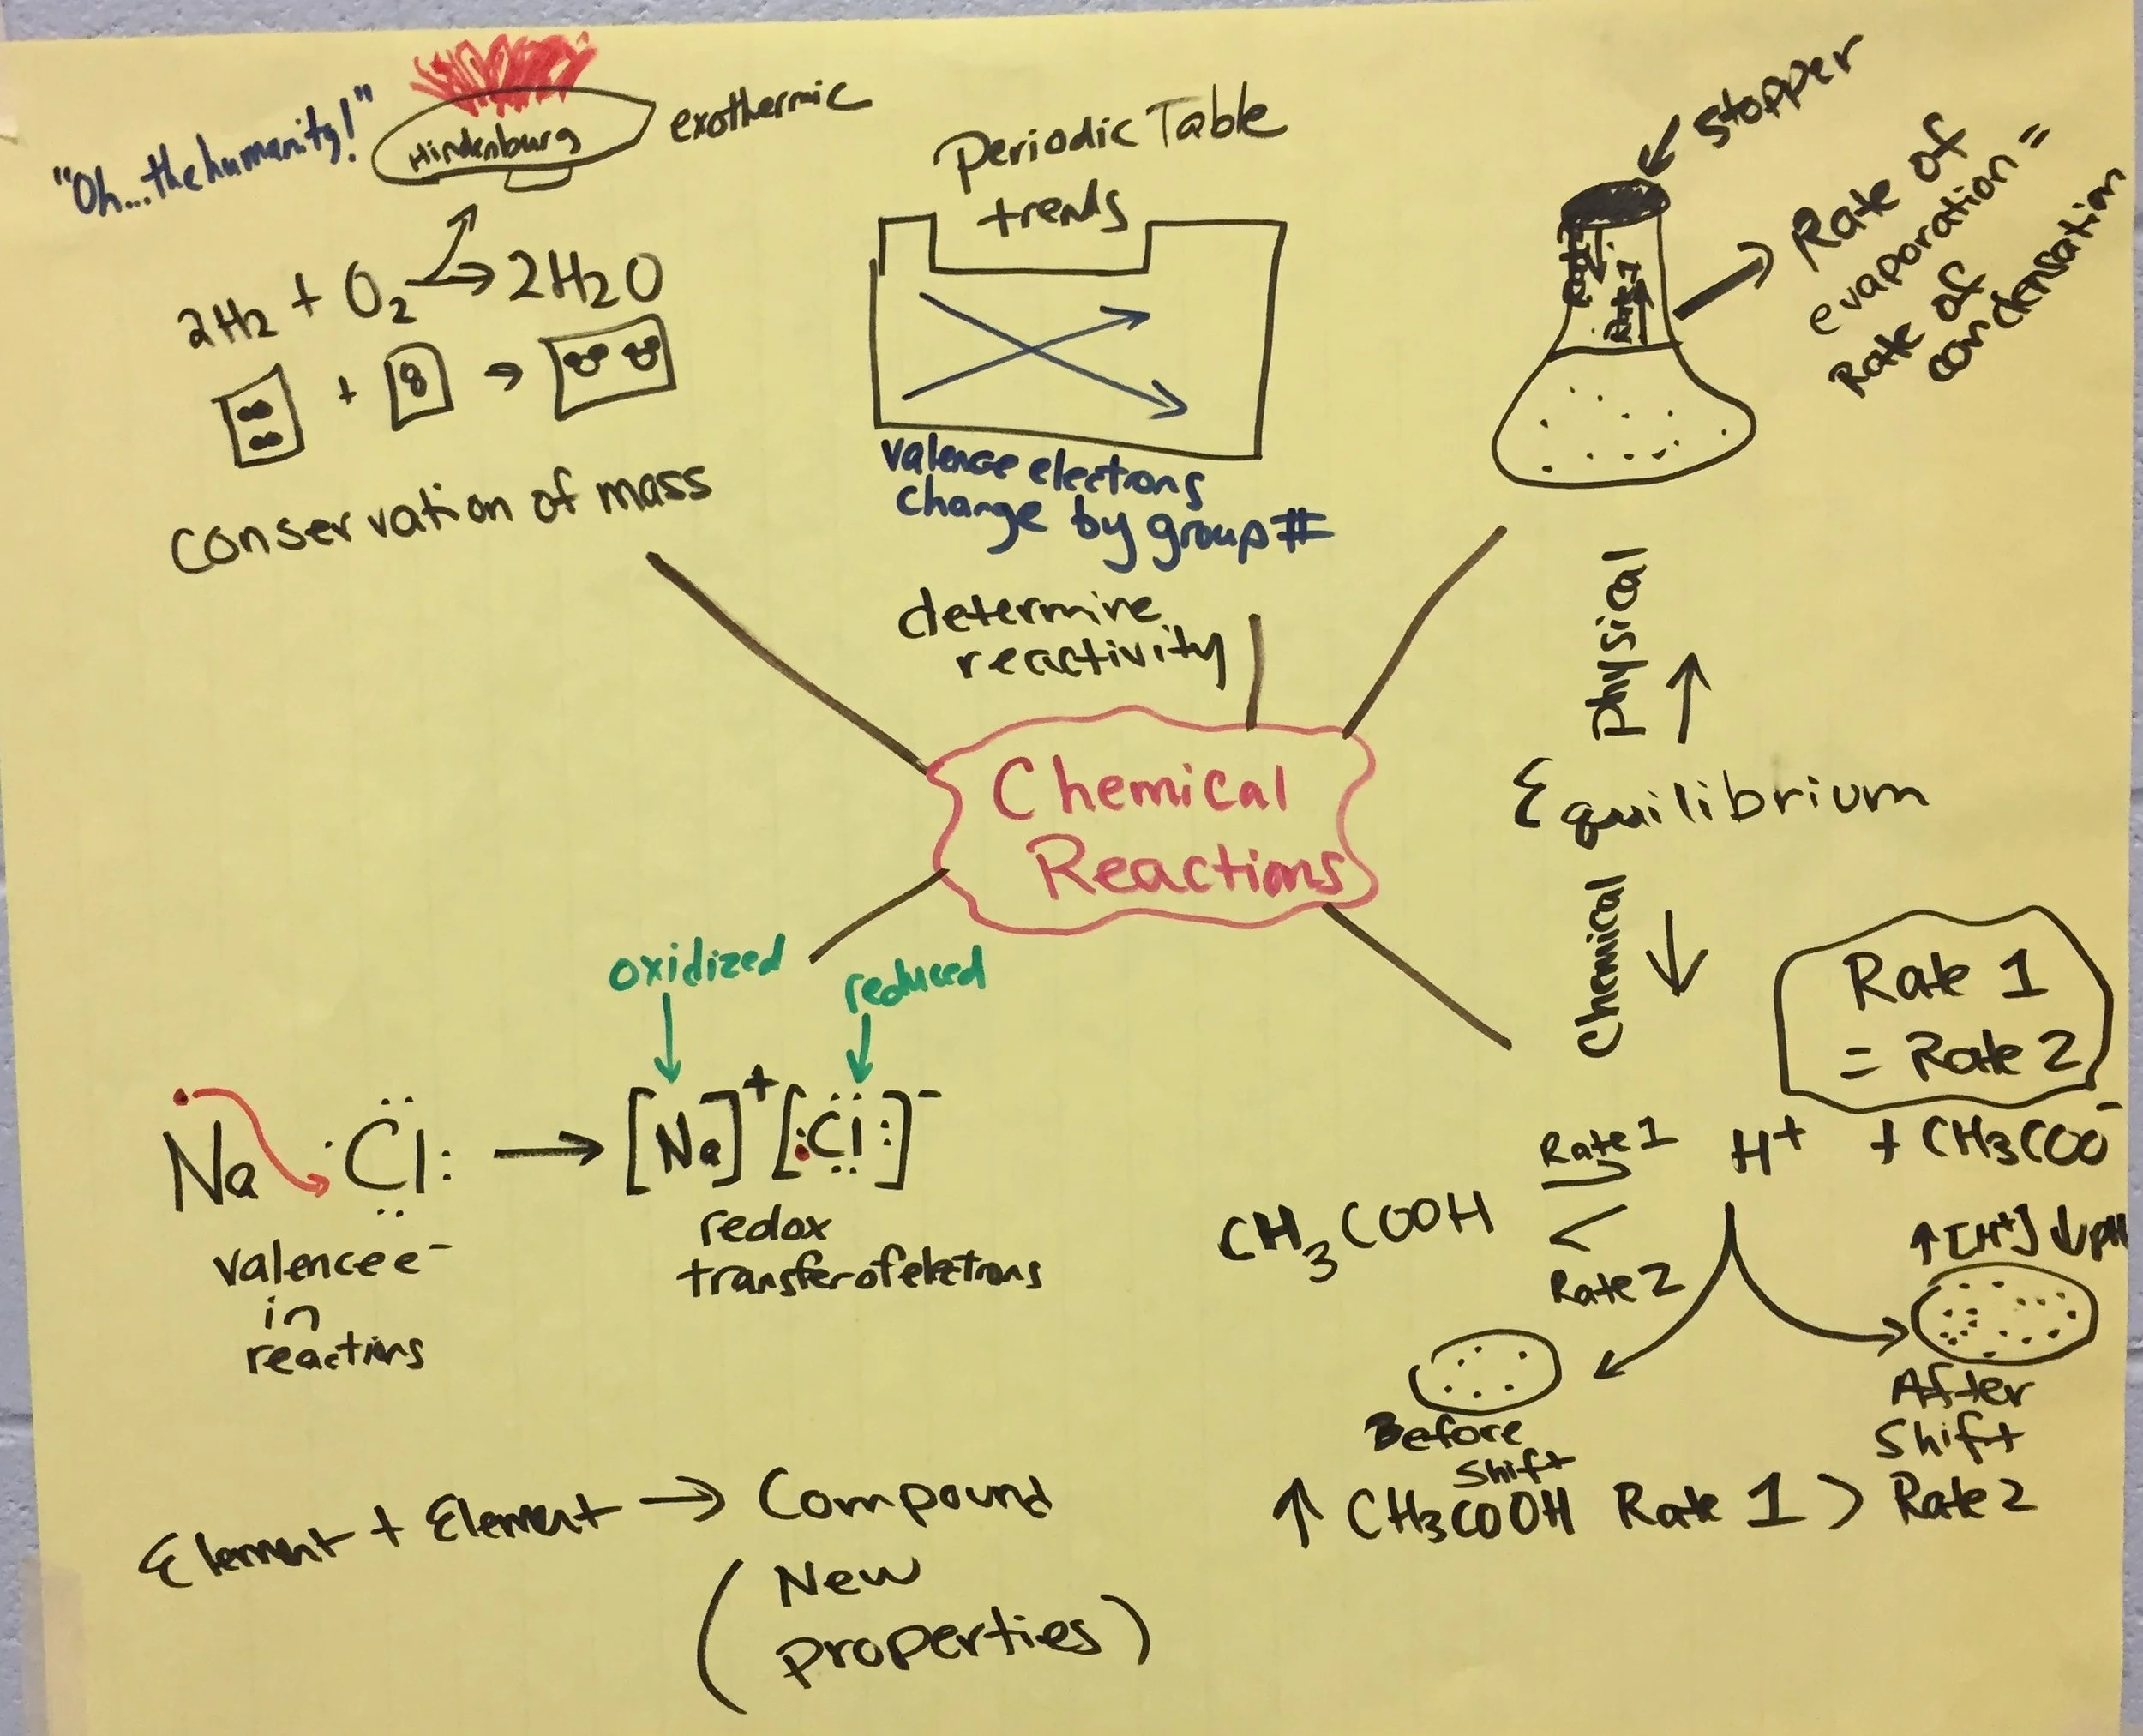 "Oh...the humanity!"
Hindenburg
exothermic
2H2 + O2 → 2H2O
+ →
conservation of mass
Periodic Table
trends
valence electrons
change by group #
determine
reactivity
stopper
Rate 2
Rate 1
Rate of
evaporation =
Rate of
condensation
Physical
↑
Equilibrium
Chemical
↓
Chemical
Reactions
oxidized
reduced
Na :Cl: → [Na]+ [:Cl:]-
valence e-
in
reactions
redox
transfer of electrons
Element + Element → Compound
(New
properties)
Rate 1
= Rate 2
CH3COOH
Rate 1
Rate 2
H+ + CH3COO-
↑[H+] ↓pH
Before
Shift
After
Shift
↑ CH3COOH Rate 1 > Rate 2